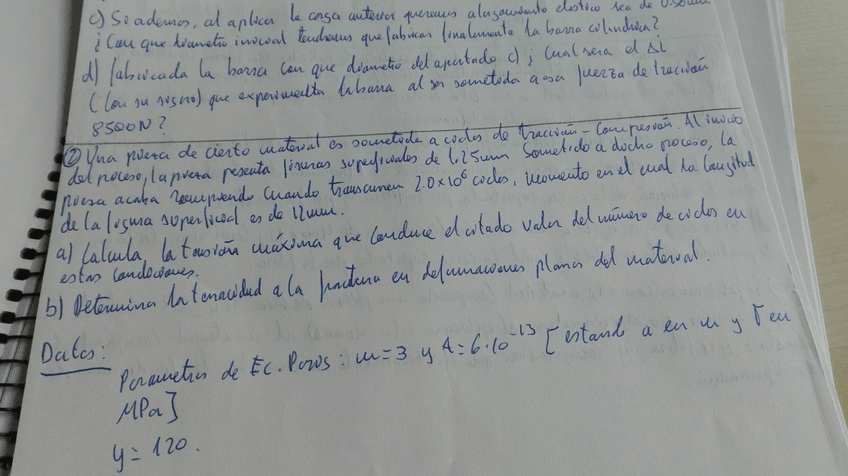 c) Si además, al aplicar la carga anterior queremos alargamiento elastico sea de 0.50mm
¿Con que diametro inicial tendremos que fabricar finalmente la barra cilindrica?
d) fabricada la barra con que diametro del apartado c) ¿cual sera el Δl
(con su signo) que experimenta la barra al ser sometida a esa fuerza de tracción
8500N?
② Una pieza de cierto material es sometida a ciclos de tracción-compresión. Al inicio
del proceso, la pieza presenta fisuras superficiales de 1.25mm sometido a dicho proceso, la
pieza acaba rompiendo cuando transcurren 2.0×10⁶ ciclos, momento en el cual la longitud
de la fisura superficial es de 12mm.
a) Calcula, la tensión máxima que conduce el citado valor del número de ciclos en
estas condiciones.
b) Determina la tenacidad a la fractura en deformaciones planas del material.
Datos:
Parametros de Ec. Paris: m=3 y A=6·10⁻¹³ [estando a en m y σ en
MPa]
y=120.